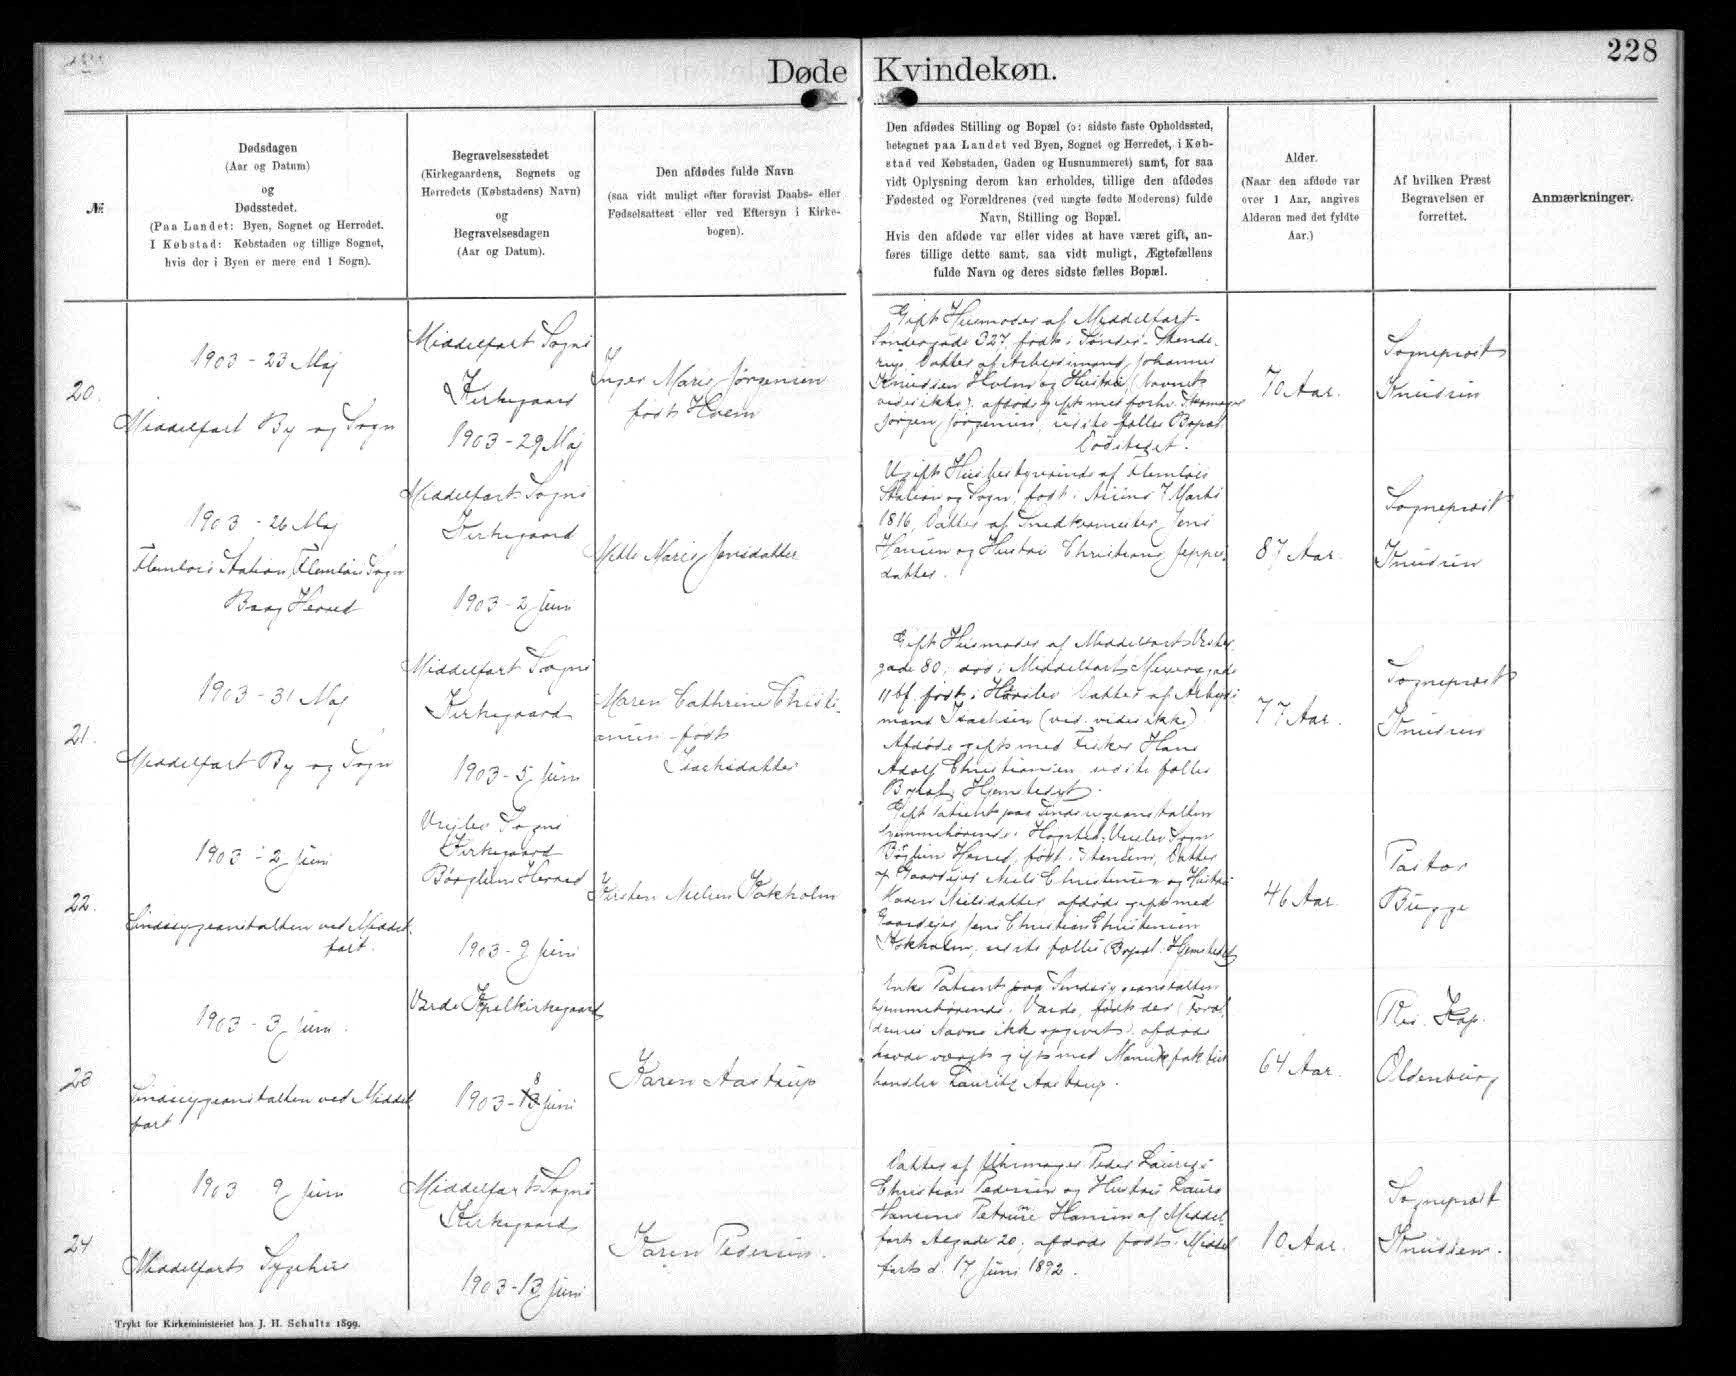 228
Døde Kvindekøn.
№
Dødsdagen
(Aar og Datum)
og
Dødsstedet.
(Paa Landet: Byen, Sognet og Herredet.
I Købstad: Købstaden og tillige Sognet,
hvis der i Byen er mere end 1 Sogn).
Begravelsesstedet
(Kirkegaardens, Sognets og
Herredets (Købstadens) Navn)
og
Begravelsesdagen
(Aar og Datum).
Den afdødes fulde Navn
(saa vidt muligt efter forevist Daabs- eller
Fødselsattest eller ved Eftersyn i Kirke-
bogen).
Den afdødes Stilling og Bopæl (ɔ: sidste faste Opholdssted,
betegnet paa Landet ved Byen, Sognet og Herredet, i Køb-
stad ved Købstaden, Gaden og Husnummeret) samt, for saa
vidt Oplysning derom kan erholdes, tillige den afdødes
Fødested og Forældrenes (ved uægte fødte Moderens) fulde
Navn, Stilling og Bopæl.
Hvis den afdøde var eller vides at have været gift, an-
føres tillige dette samt, saa vidt muligt, Ægtefællens
fulde Navn og deres sidste fælles Bopæl.
Alder.
(Naar den afdøde var
over 1 Aar, angives
Alderen med det fyldte
Aar.)
Af hvilken Præst
Begravelsen er
forrettet.
Anmærkninger.
20.
1903 - 23 Maj
Middelfart By og Sogn
Middelfart Sogns
Kirkegaard
1903 - 29 Maj
Inger Marie Jørgensen
født Holm
Gift Husmoder af Middelfart
Søndergade 327, født i Sønder-
Datter af Arbejdsmand Johannes
Knudsen Holm og Hustru (Navnet
vides ikke). afdøde gift med forhv. Skomager
Jørgen Jørgensen, sidste fælles Bopæl
Dødsstedet.
70 Aar.
Sogneprovst
Knudsen
1903 - 26 Maj
Flemløse Station, Flemløse Sogn
Baag Herred
Middelfart Sogns
Kirkegaard
1903 - 2 Juni
Mette Marie Jensdatter
Ugift Husbestyrerinde af Flemløse
Station og Sogn, født i Assens 7 Marts
1816, Datter af Snedkermester Jens
Hansen og Hustru Christiane Jeppes-
datter.
87 Aar.
Sogneprovst
Knudsen
21.
1903 - 31 Maj
Middelfart By og Sogn
Middelfart Sogns
Kirkegaard
1903 - 5 Juni
Maren Cathrine Christi-
ansen født
Isachsdatter
Gift Husmoder af Middelfart Vester-
gade 80, død i Middelfart
født i Datter af Arbejds-
mand Isachsen (vides ikke)
Afdøde gift med Fisker Hans
Adolf Christiansen, sidste fælles
Bopæl Hjemstedet.
77 Aar.
Sogneprovst
Knudsen
22.
1903 - 2 Juni
Sindssygeanstalten ved Middel-
fart.
Vrejlev Sogns
Kirkegaard
Børglum Herred
1903 - 9 Juni
Kirsten Nielsen Kokholm
Gift Patient paa Sindssygeanstalten
hjemmehørende i Vrejlev Sogn
Børglum Herred, født i Stenum, Datter
af Gaardejer Niels Christensen og Hustru
Maren Nielsdatter, afdøde gift med
Gaardejer Jens Christian Christensen
Kokholm, sidste fælles Bopæl Hjemstedet
46 Aar.
Pastor
Bugge
23
1903 - 3 Juni.
Sindssygeanstalten ved Middel-
fart
Varde Kapelkirkegaard
8
1903 - 13 Juni
Karen Aastrup
Enke Patient paa Sindssygeanstalten
hjemmehørende i Varde, født der (Foræl-
drenes Navne ikke opgivet), afdøde
havde været gift med Manufaktur-
handler Lauritz Aastrup.
64 Aar.
Res. Kap.
Oldenburg
24
1903 9 Juni
Middelfart Sygehus
Middelfart Sogns
Kirkegaard
1903 - 13 Juni
Karen Pedersen.
Datter af Uhrmager Peder Laurits
Christian Pedersen og Hustru Laura
Hansine Petrine Hansen af Middel-
fart Algade 20, afdøde født i Middel-
fart d. 17 Juni 1892.
10 Aar.
Sogneprovst
Knudsen.
Trykt for Kirkeministeriet hos J. H. Schultz 1899.